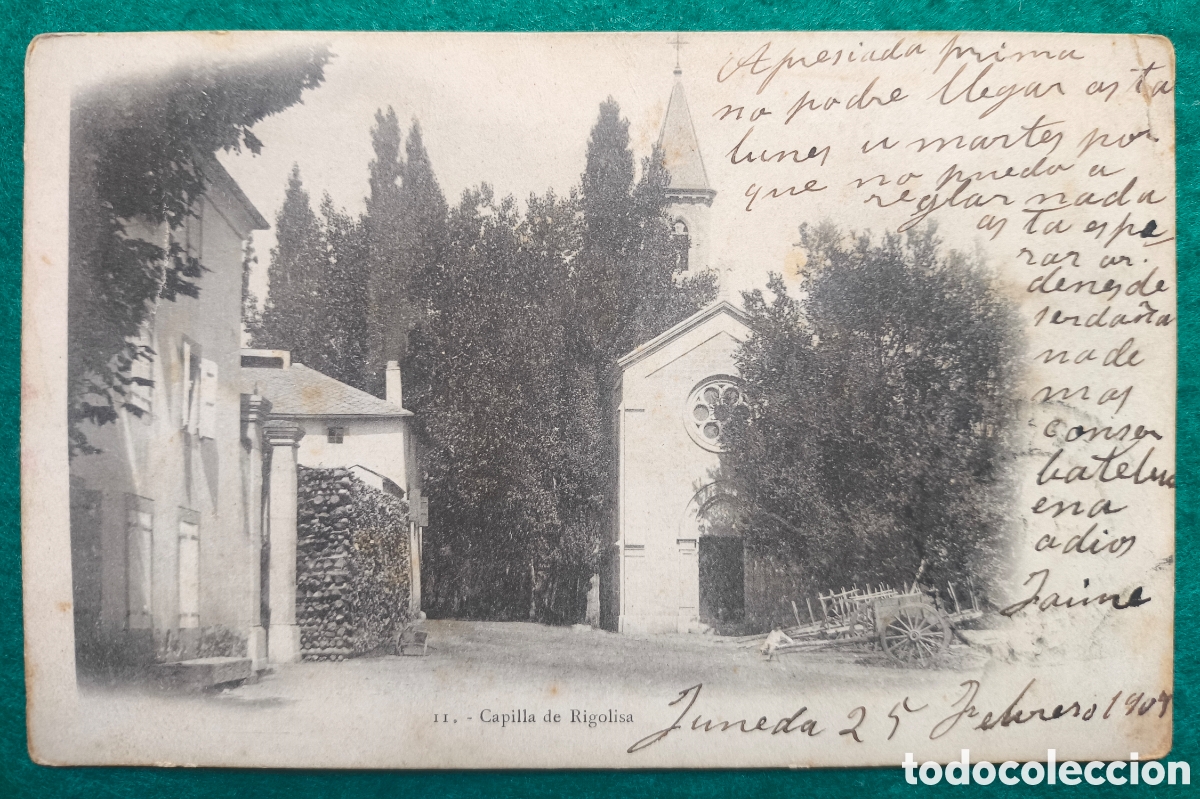 Apresiada prima
no podre llegar asta
lunes u martes por
que no puedo a
reglar nada
asta espe
rar or.
denes de
serdaña
na de
mas
conser
batebu
ena
adios
Jaime
11. - Capilla de Rigolisa
Juneda 25 Febrero 1904
todocoleccion